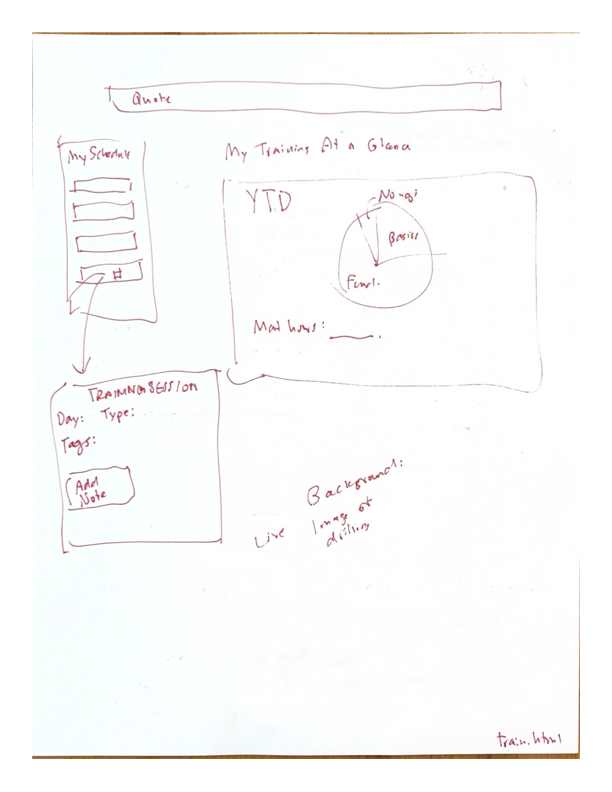 Quote
My Schedule
My Training At a Glance
YTD
No-gi
Basics
Fund.
Mat hours:
#
TRAINING SESSION
Day: Type:
Tags:
Add
Note
Background:
Live Image of
drilling
train.html